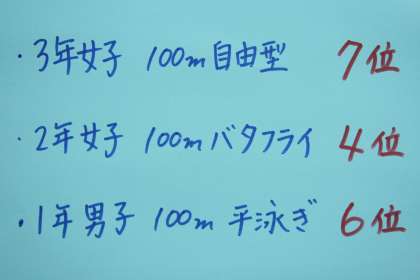 ・3年女子 100m自由型 7位
・2年女子 100mバタフライ 4位
・1年男子 100m平泳ぎ 6位